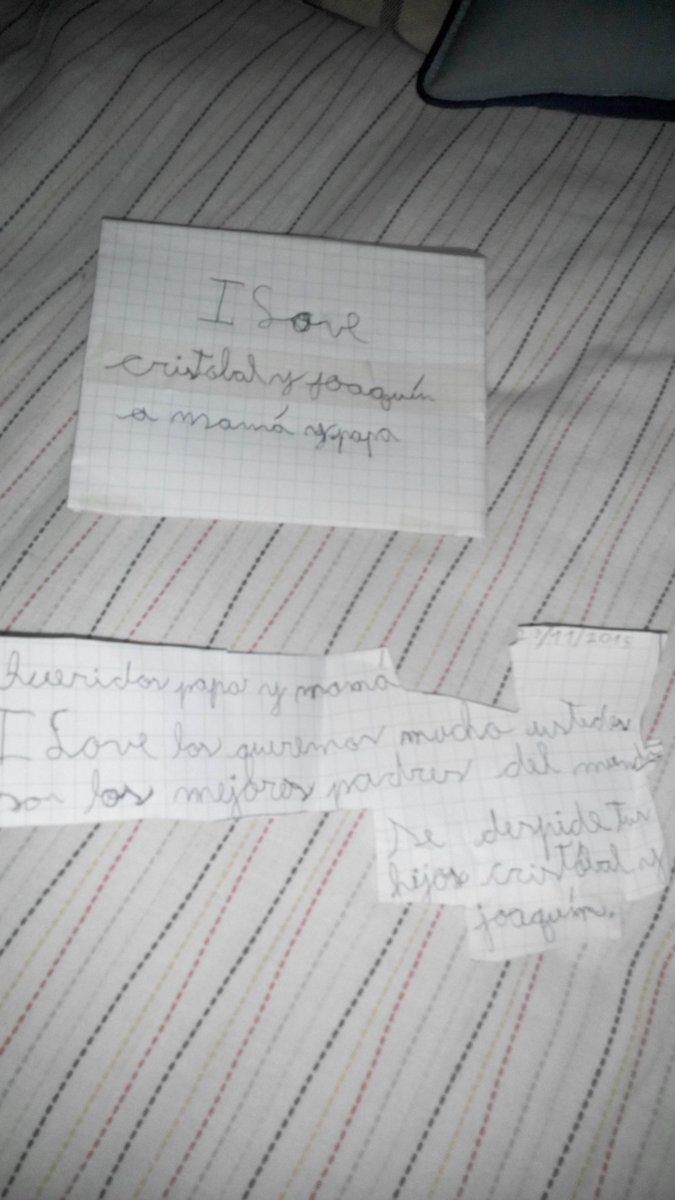 I Love
cristobal y joaquín
a mamá y papa
23/11/2015
Queridos papa y mama
I Love los queremos mucho ustedes
son los mejores padres del mundo
Se despide tus
hijos cristóbal y
joaquín.